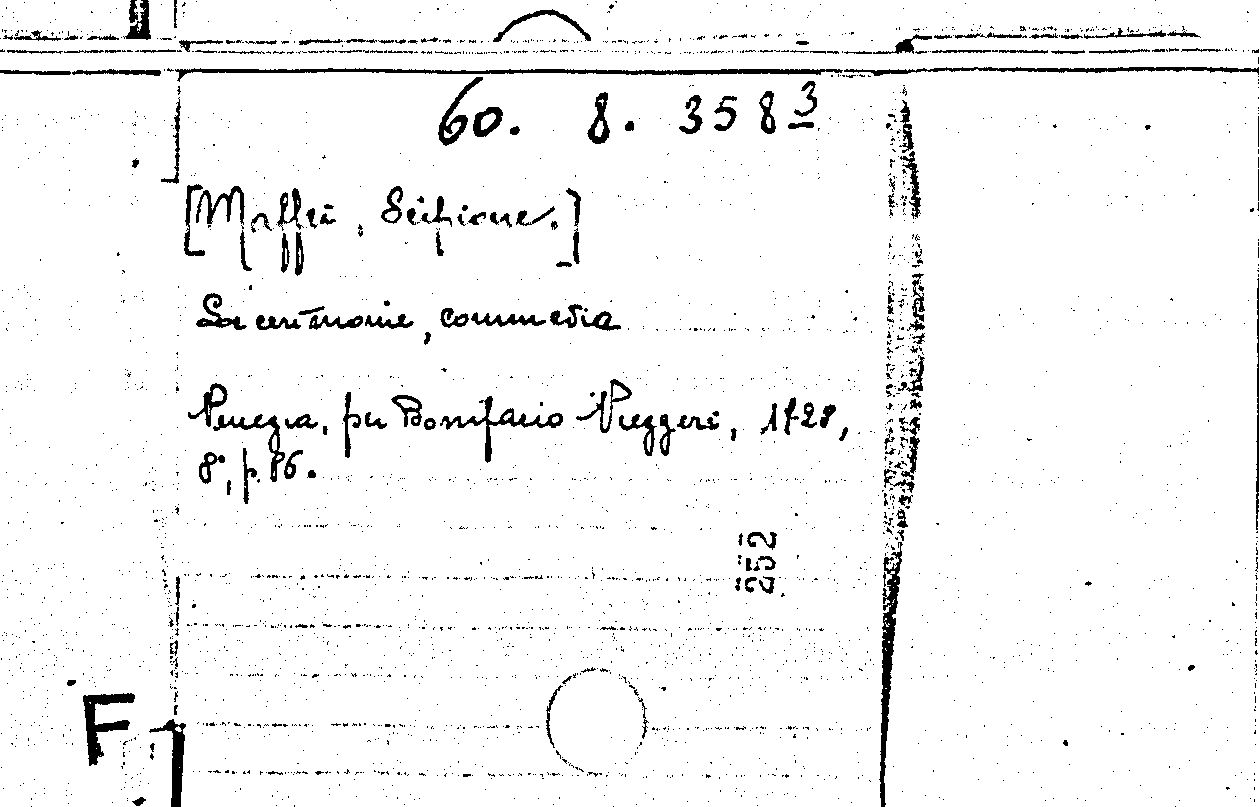 60. 8. 358 3
[Maffei, Scipione.]
La cerimonie, commedia
Venezia, per Bonifacio Vieggeri, 1728,
8°, p. 86.
252
F